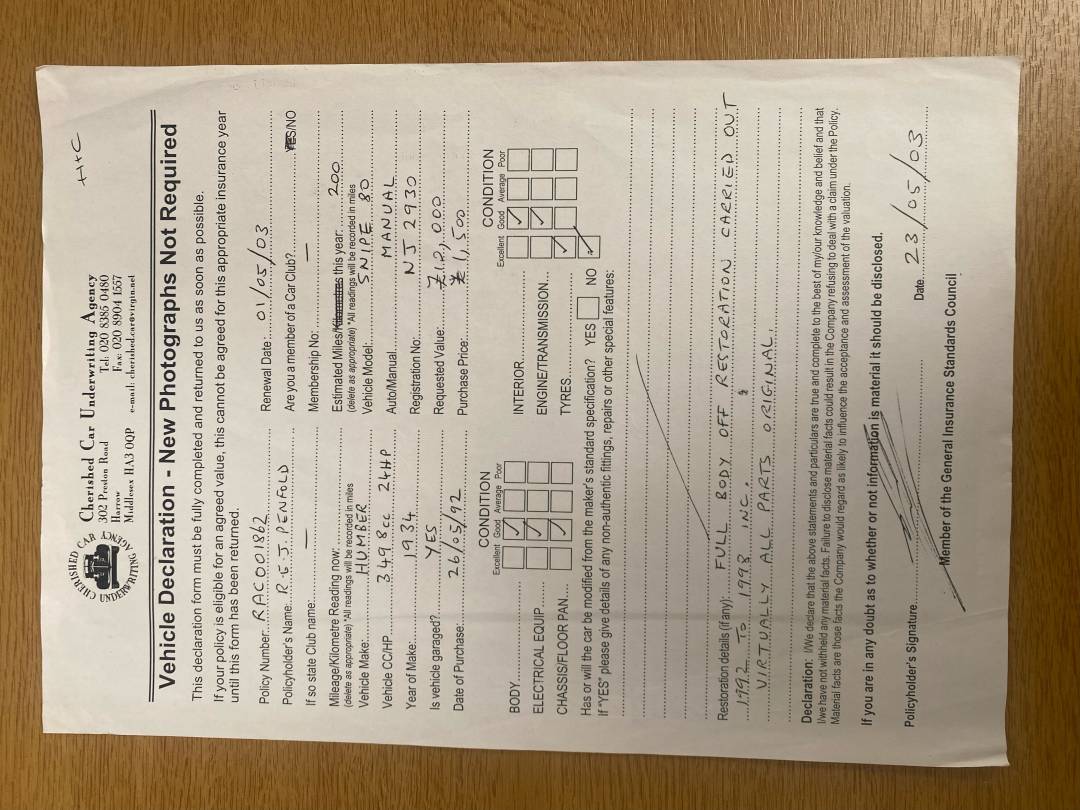 H+C
CHERISHED CAR UNDERWRITING AGENCY
Cherished Car Underwriting Agency
302 Preston Road Tel: 020 8385 0480
Harrow Fax: 020 8904 1557
Middlesex HA3 0QP e-mail: cherished.car@virgin.net
Vehicle Declaration - New Photographs Not Required
This declaration form must be fully completed and returned to us as soon as possible.
If your policy is eligible for an agreed value, this cannot be agreed for this appropriate insurance year
until this form has been returned.
Policy Number: RAC001862 Renewal Date: 01/05/03
Policyholder's Name: R.E.J. PENFOLD Are you a member of a Car Club? YES/NO
If so state Club name: — Membership No: —
Mileage/Kilometre Reading now: Estimated Miles/Kilometres this year: 200
(delete as appropriate) *All readings will be recorded in miles (delete as appropriate) *All readings will be recorded in miles
Vehicle Make: HUMBER Vehicle Model: SNIPE 80
Vehicle CC/HP 3498cc 24HP Auto/Manual MANUAL
Year of Make: 1934 Registration No: NJ 2930
Is vehicle garaged? YES Requested Value: £12,000
Date of Purchase: 26/05/92 Purchase Price: £1,500
CONDITION CONDITION
Excellent Good Average Poor Excellent Good Average Poor
BODY ✓ INTERIOR ✓
ELECTRICAL EQUIP ✓ ENGINE/TRANSMISSION ✓
CHASSIS/FLOOR PAN ✓ TYRES ✓
Has or will the car be modified from the maker's standard specification? YES NO ✓
If "YES" please give details of any non-authentic fittings, repairs or other special features:
Restoration details (if any): FULL BODY OFF RESTORATION CARRIED OUT
1992 TO 1998 INC.
VIRTUALLY ALL PARTS ORIGINAL.
Declaration: I/We declare that the above statements and particulars are true and complete to the best of my/our knowledge and belief and that
I/we have not withheld any material facts. Failure to disclose material facts could result in the Company refusing to deal with a claim under the Policy.
Material facts are those facts the Company would regard as likely to influence the acceptance and assessment of the valuation.
If you are in any doubt as to whether or not information is material it should be disclosed.
Policyholder's Signature Date 23/05/03
Member of the General Insurance Standards Council